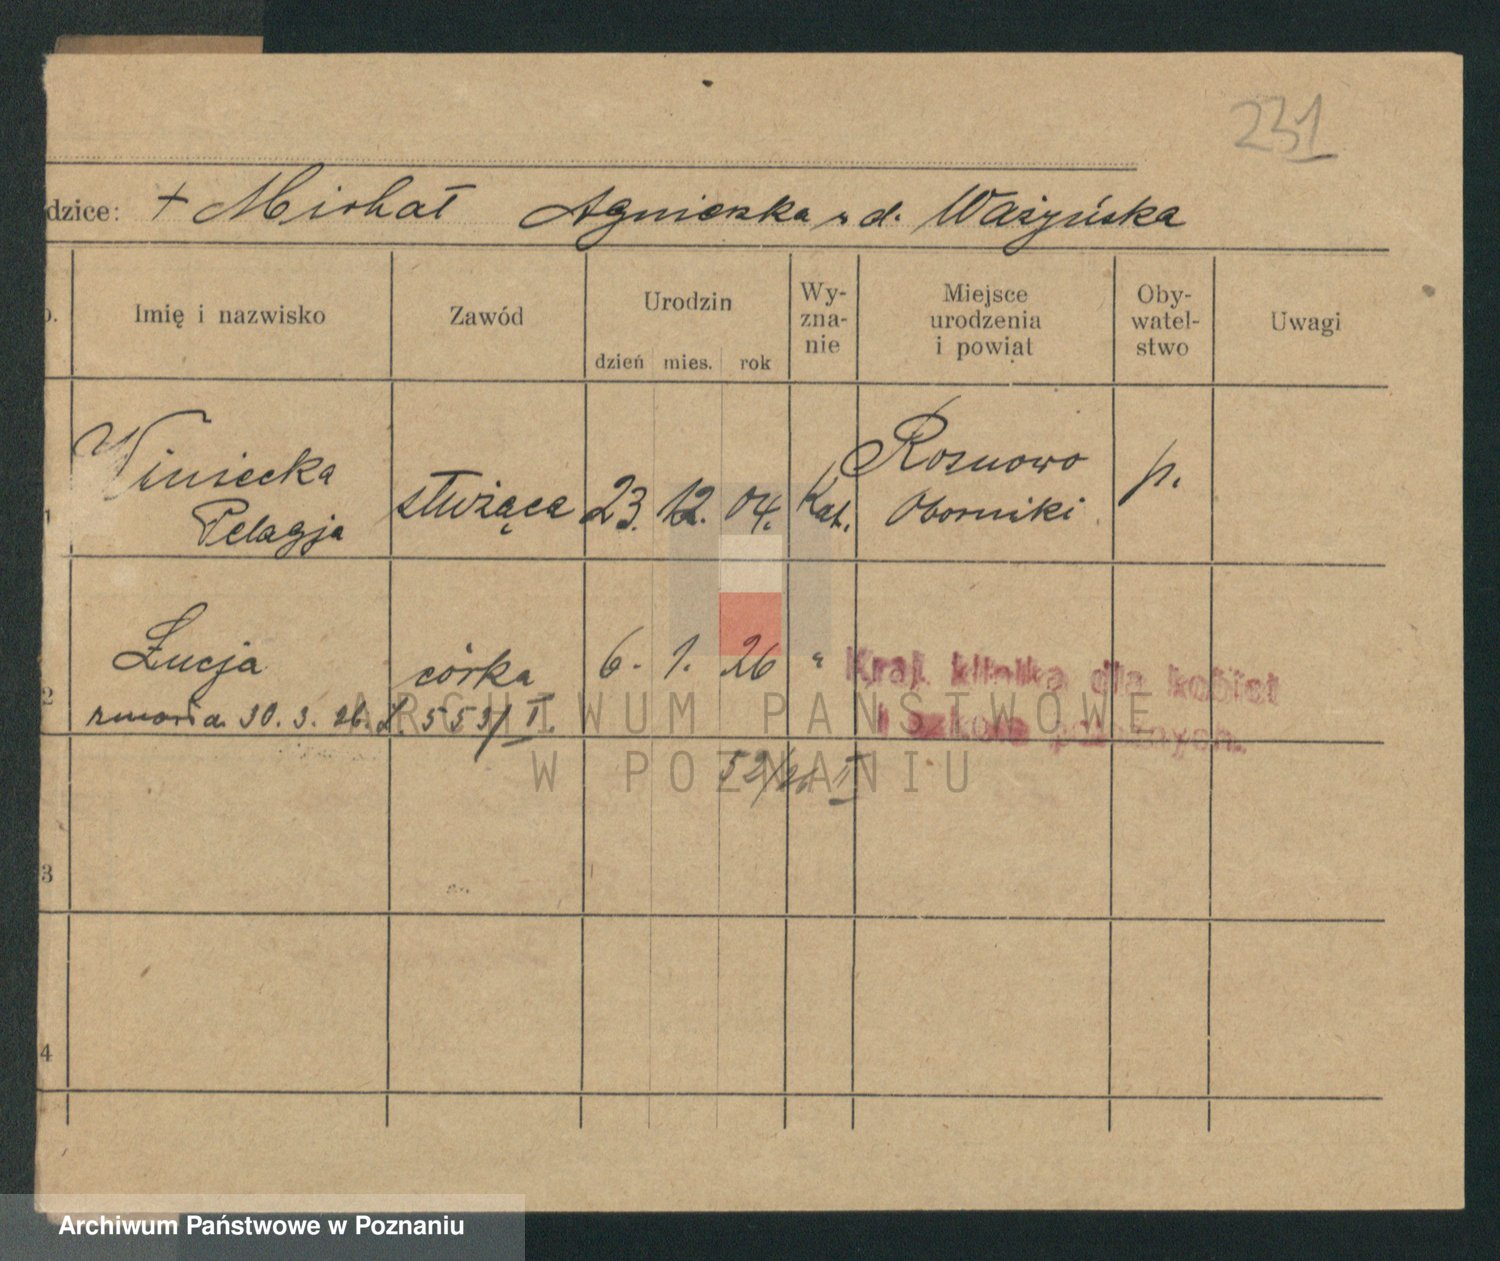 231
dzice: + Michał Agnieszka rd. Ważyńska
o. Imię i nazwisko Zawód Urodzin dzień mies. rok Wy-zna-nie Miejsce urodzenia i powiat Oby-watel-stwo Uwagi
1 Winiecka Pelagja służąca 23. 12. 04. Kat. Rosnowo Oborniki p.
2 Łucja córka 6. 1. 26 "
Kraj. klinika dla kobiet
i szkoła położnych.
zmarła 30. 3. 26. L. 553/I.
52/26 II
3
4
ARCHIWUM PAŃSTWOWE
W POZNANIU
Archiwum Państwowe w Poznaniu